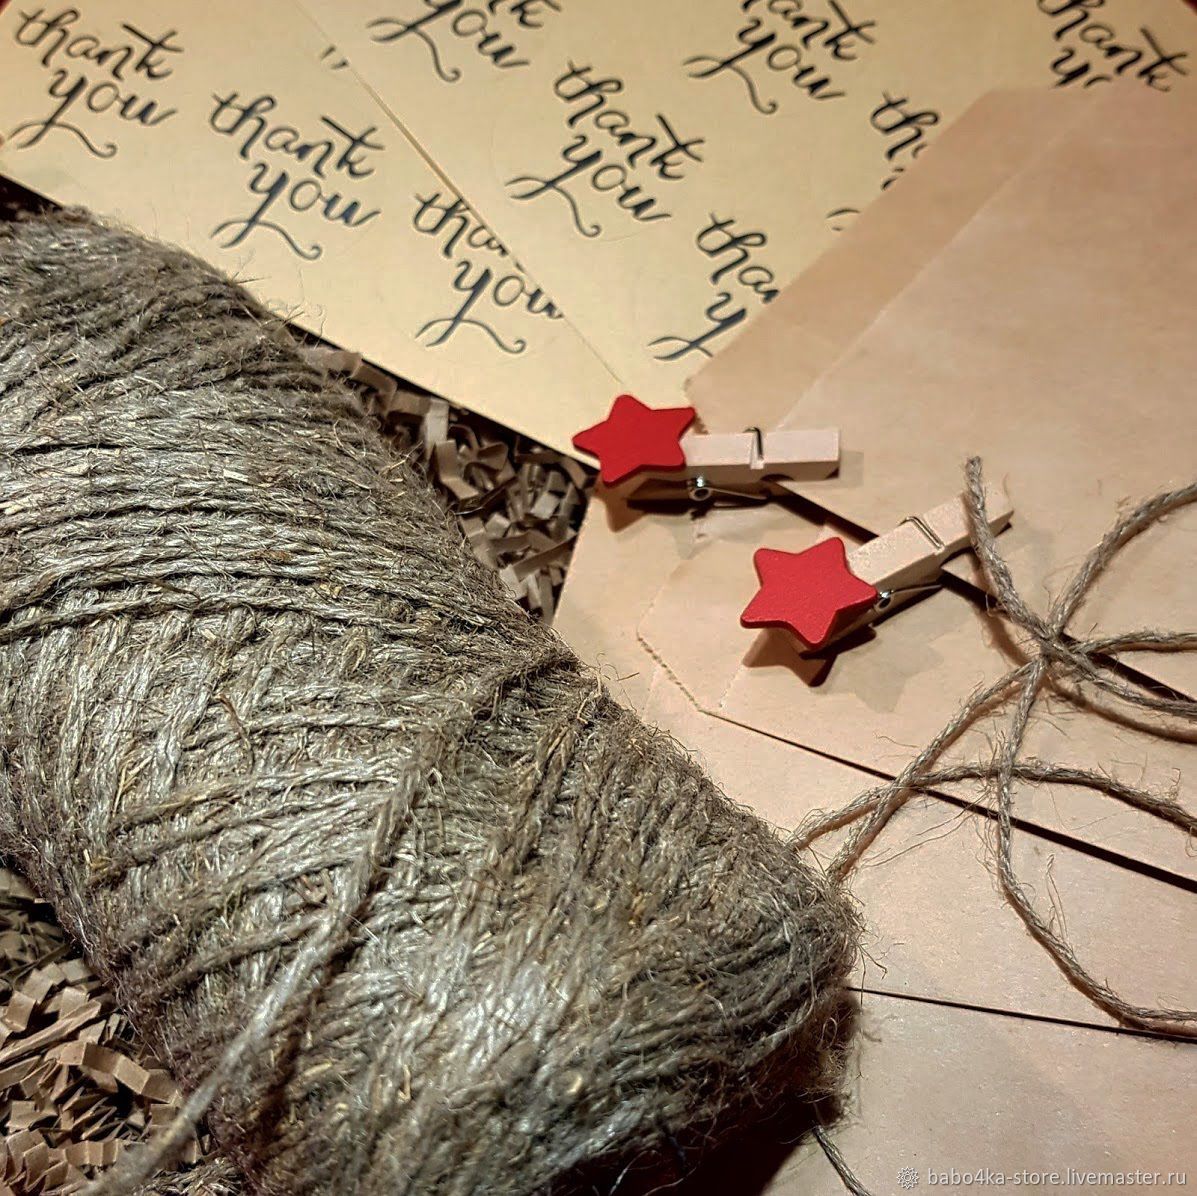 thank
you
thank
you
thank
you
thank
you
thank
you
thank
you
thank
babo4ka-store.livemaster.ru